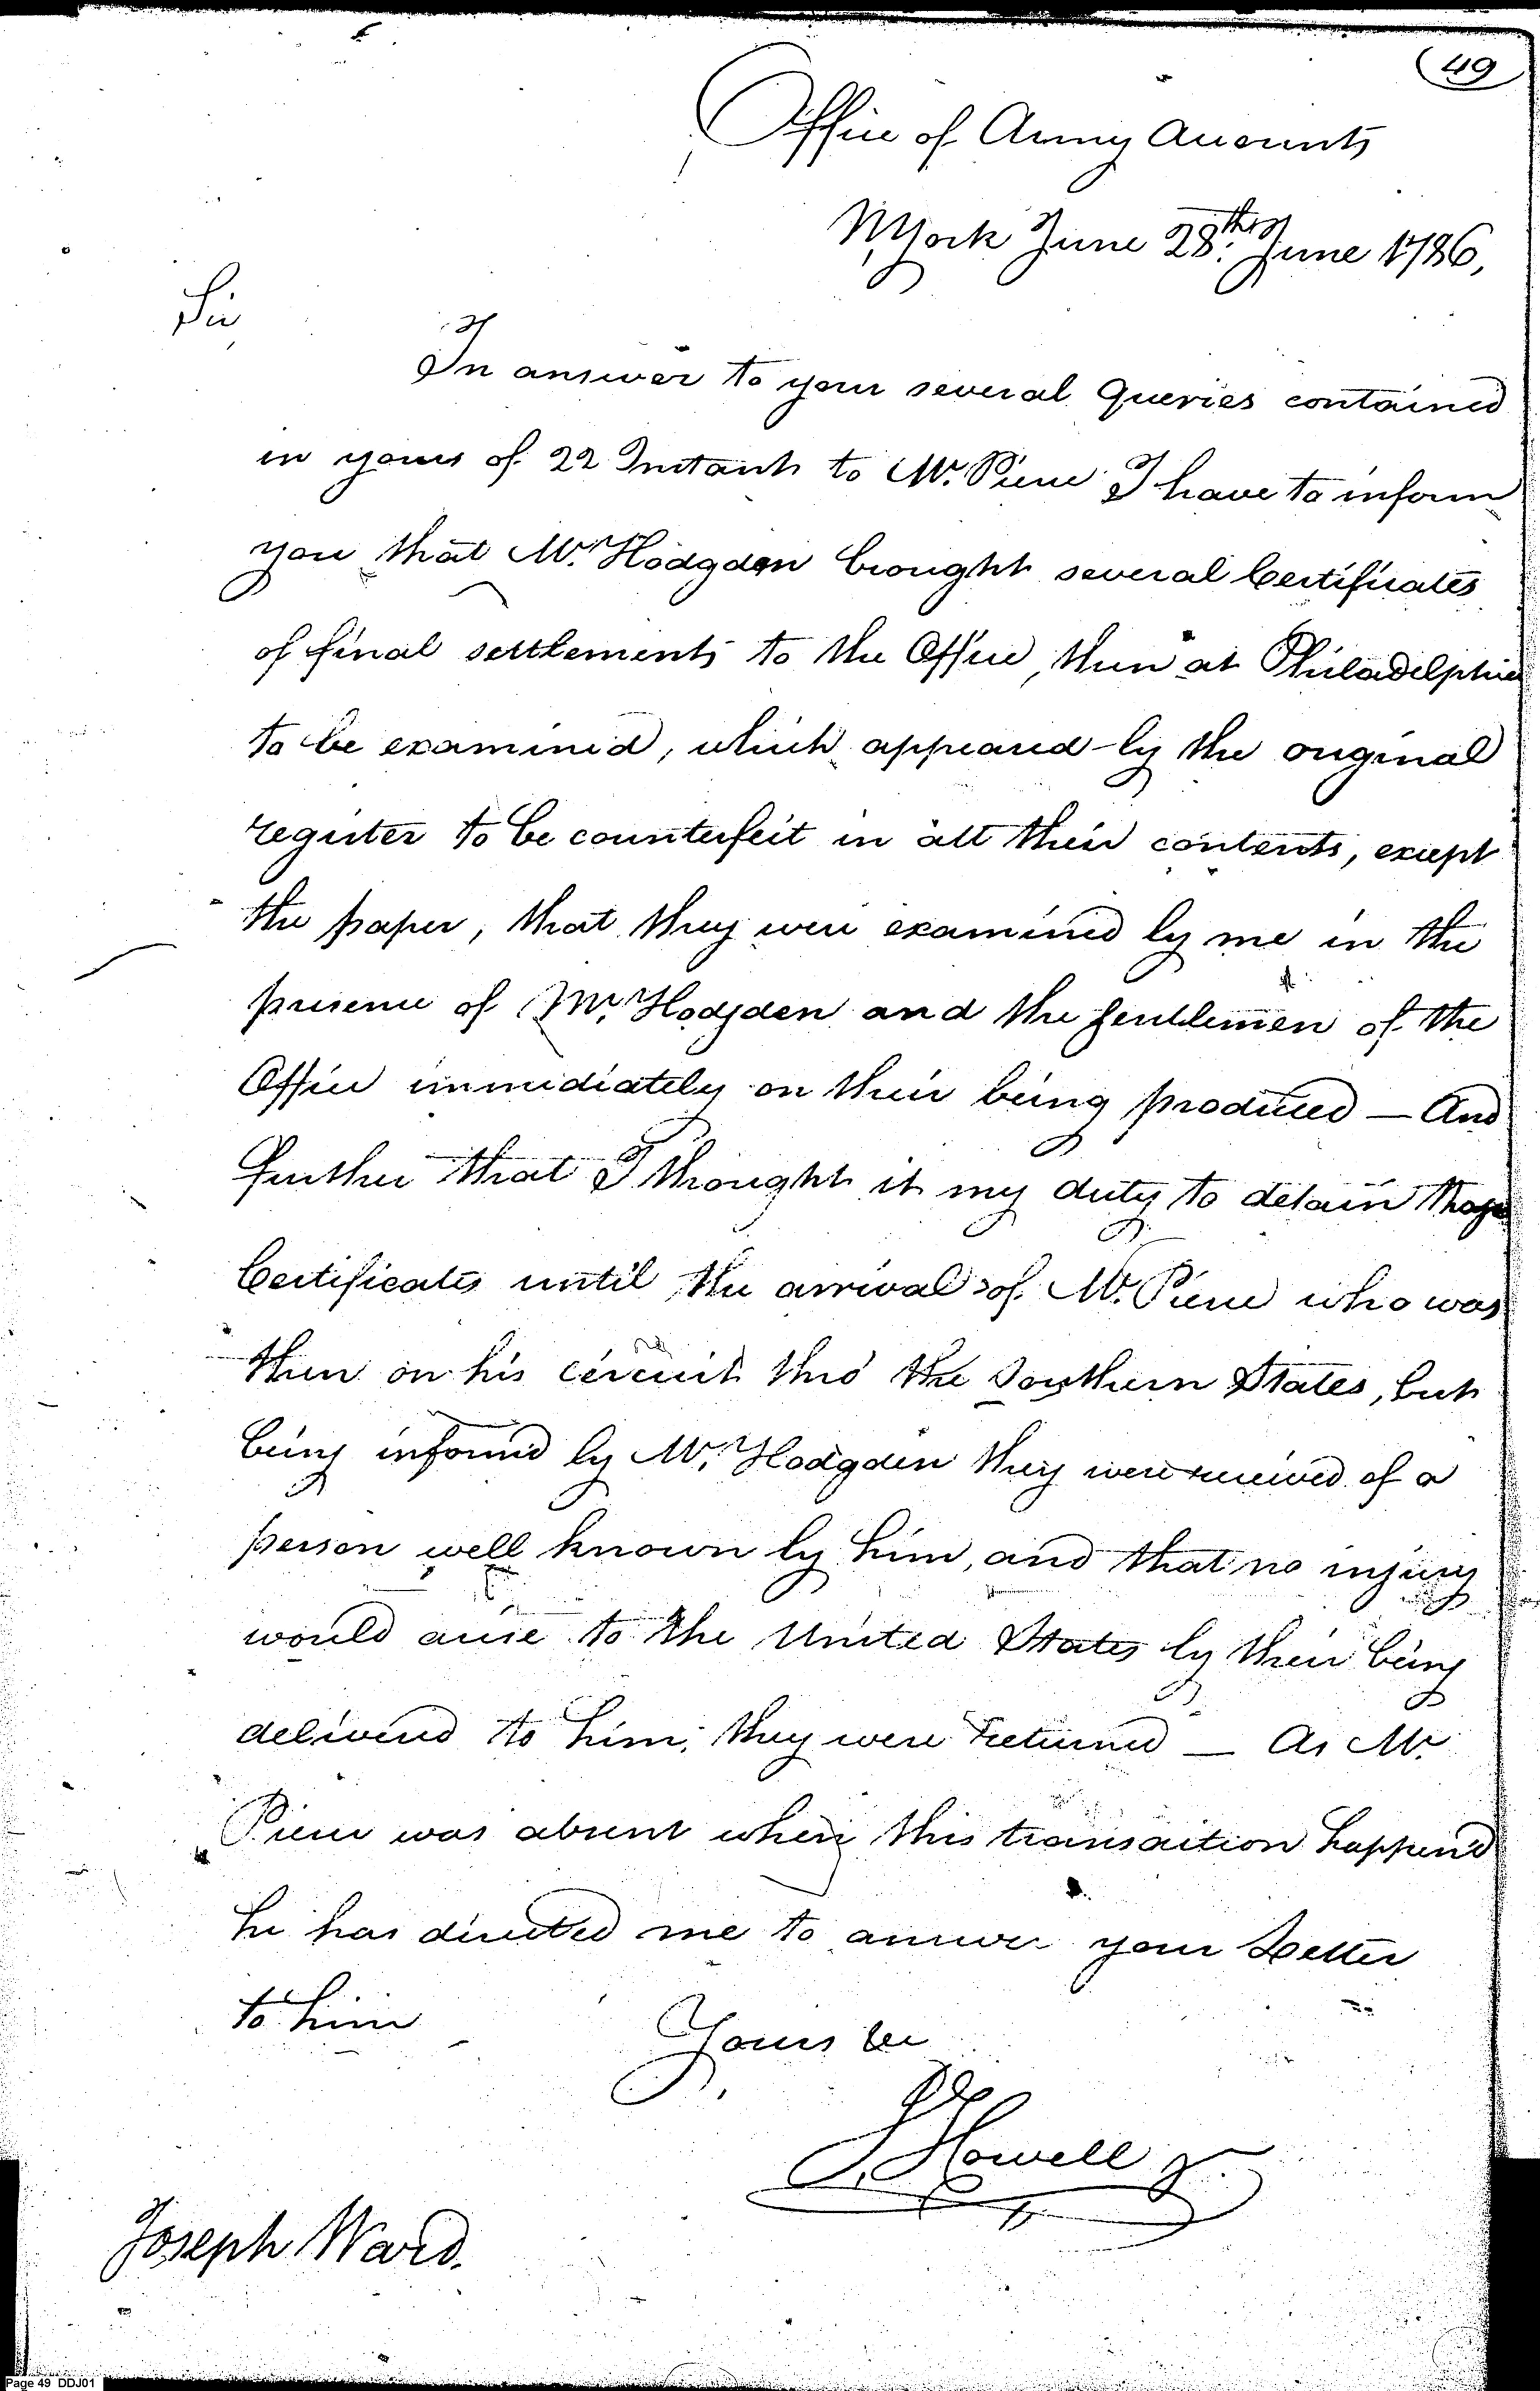 49
Office of Army Accounts
NYork June 28th. June 1786,
Sir
In answer to your several Queries contained
in yours of 22 Instant to Mr. Pierce I have to inform
you that Mr. Hodgden brought several Certificates
of final settlements to the Office, then at Philadelphia
to be examined, which appeared by the original
register to be counterfeit in all their contents, except
the paper, that they were examined by me in the
presence of Mr. Hodgden and the gentlemen of the
Office immediately on their being produced — And
further that I thought it my duty to detain those
Certificates until the arrival of Mr. Pierce who was
then on his circuit thro' the Southern States, but
being informed by Mr. Hodgden they were received of a
person well known by him, and that no injury
would arise to the United States by their being
delivered to him, they were returned — As Mr.
Pierce was absent when this transaction happen'd
he has directed me to answer your Letter
to him
Yours &c
J Howell Jr.
Joseph Ward.
Page 49 DDJ01